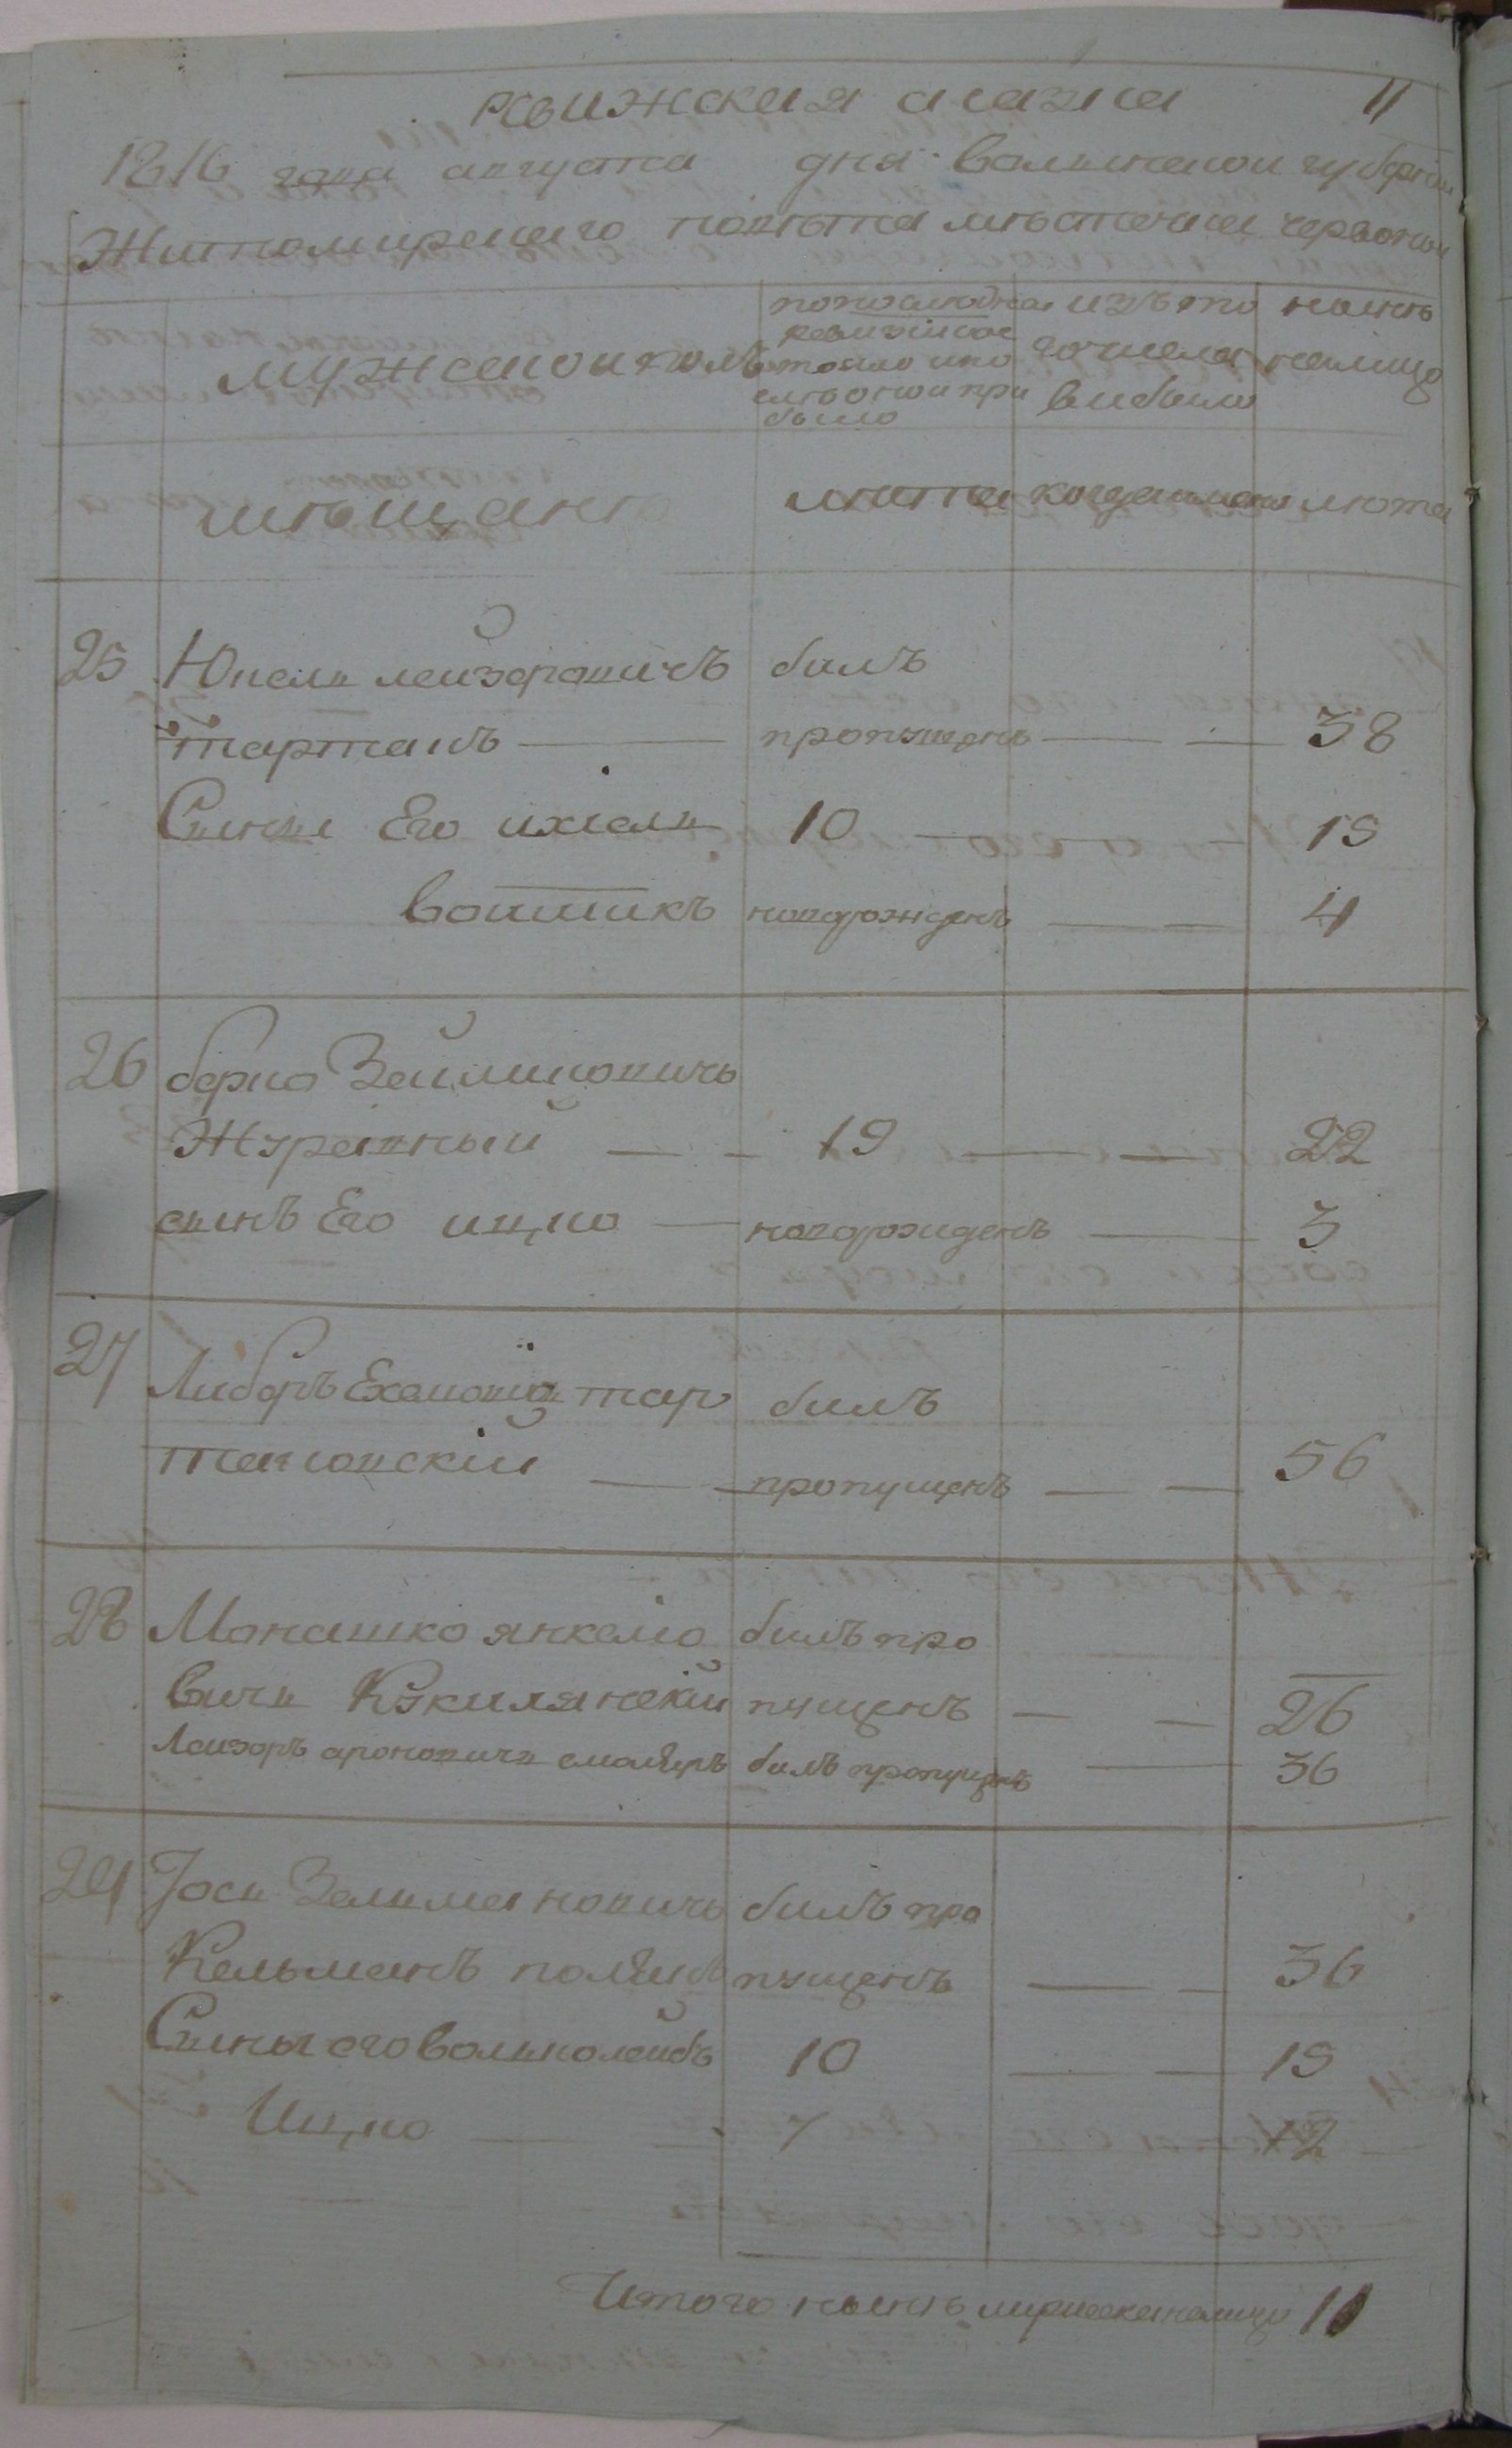 Ревижская сказка 11
1816 года августа дня волынской губернии
Житомирского повета местечка червоной
мужеской полъ
по последней ревизии состояло и по
сле оной при
было
изъ то
го числа
выбыло
ныне
налицо
мещане
лета когда именно лета
25 Юкель Лейзеровичъ билъ
тартакъ — пропущенъ — — 38
Сыны Его ихиель 10 — 15
Вольтикъ новорожденъ — — 4
26 берко Зейликовичь
Журавный — — 19 — — 22
сынъ Его ицко — новорожденъ — — 3
27 Либеръ Ехелювичъ тар билъ
таковскій — — пропущенъ — — 56
28 Монашко янкелю билъ про
вичь Кукилянскій пущенъ — — 26
Лейзоръ ароновичь смоляръ билъ пропущенъ — 36
29 Іось Зельмановичь билъ про
Кельманъ полякъ пущенъ — — 36
Сыны его Волько лейбъ 10 — — 15
Ицко — 7 — 12
Итого ныне мужеска налицо 11